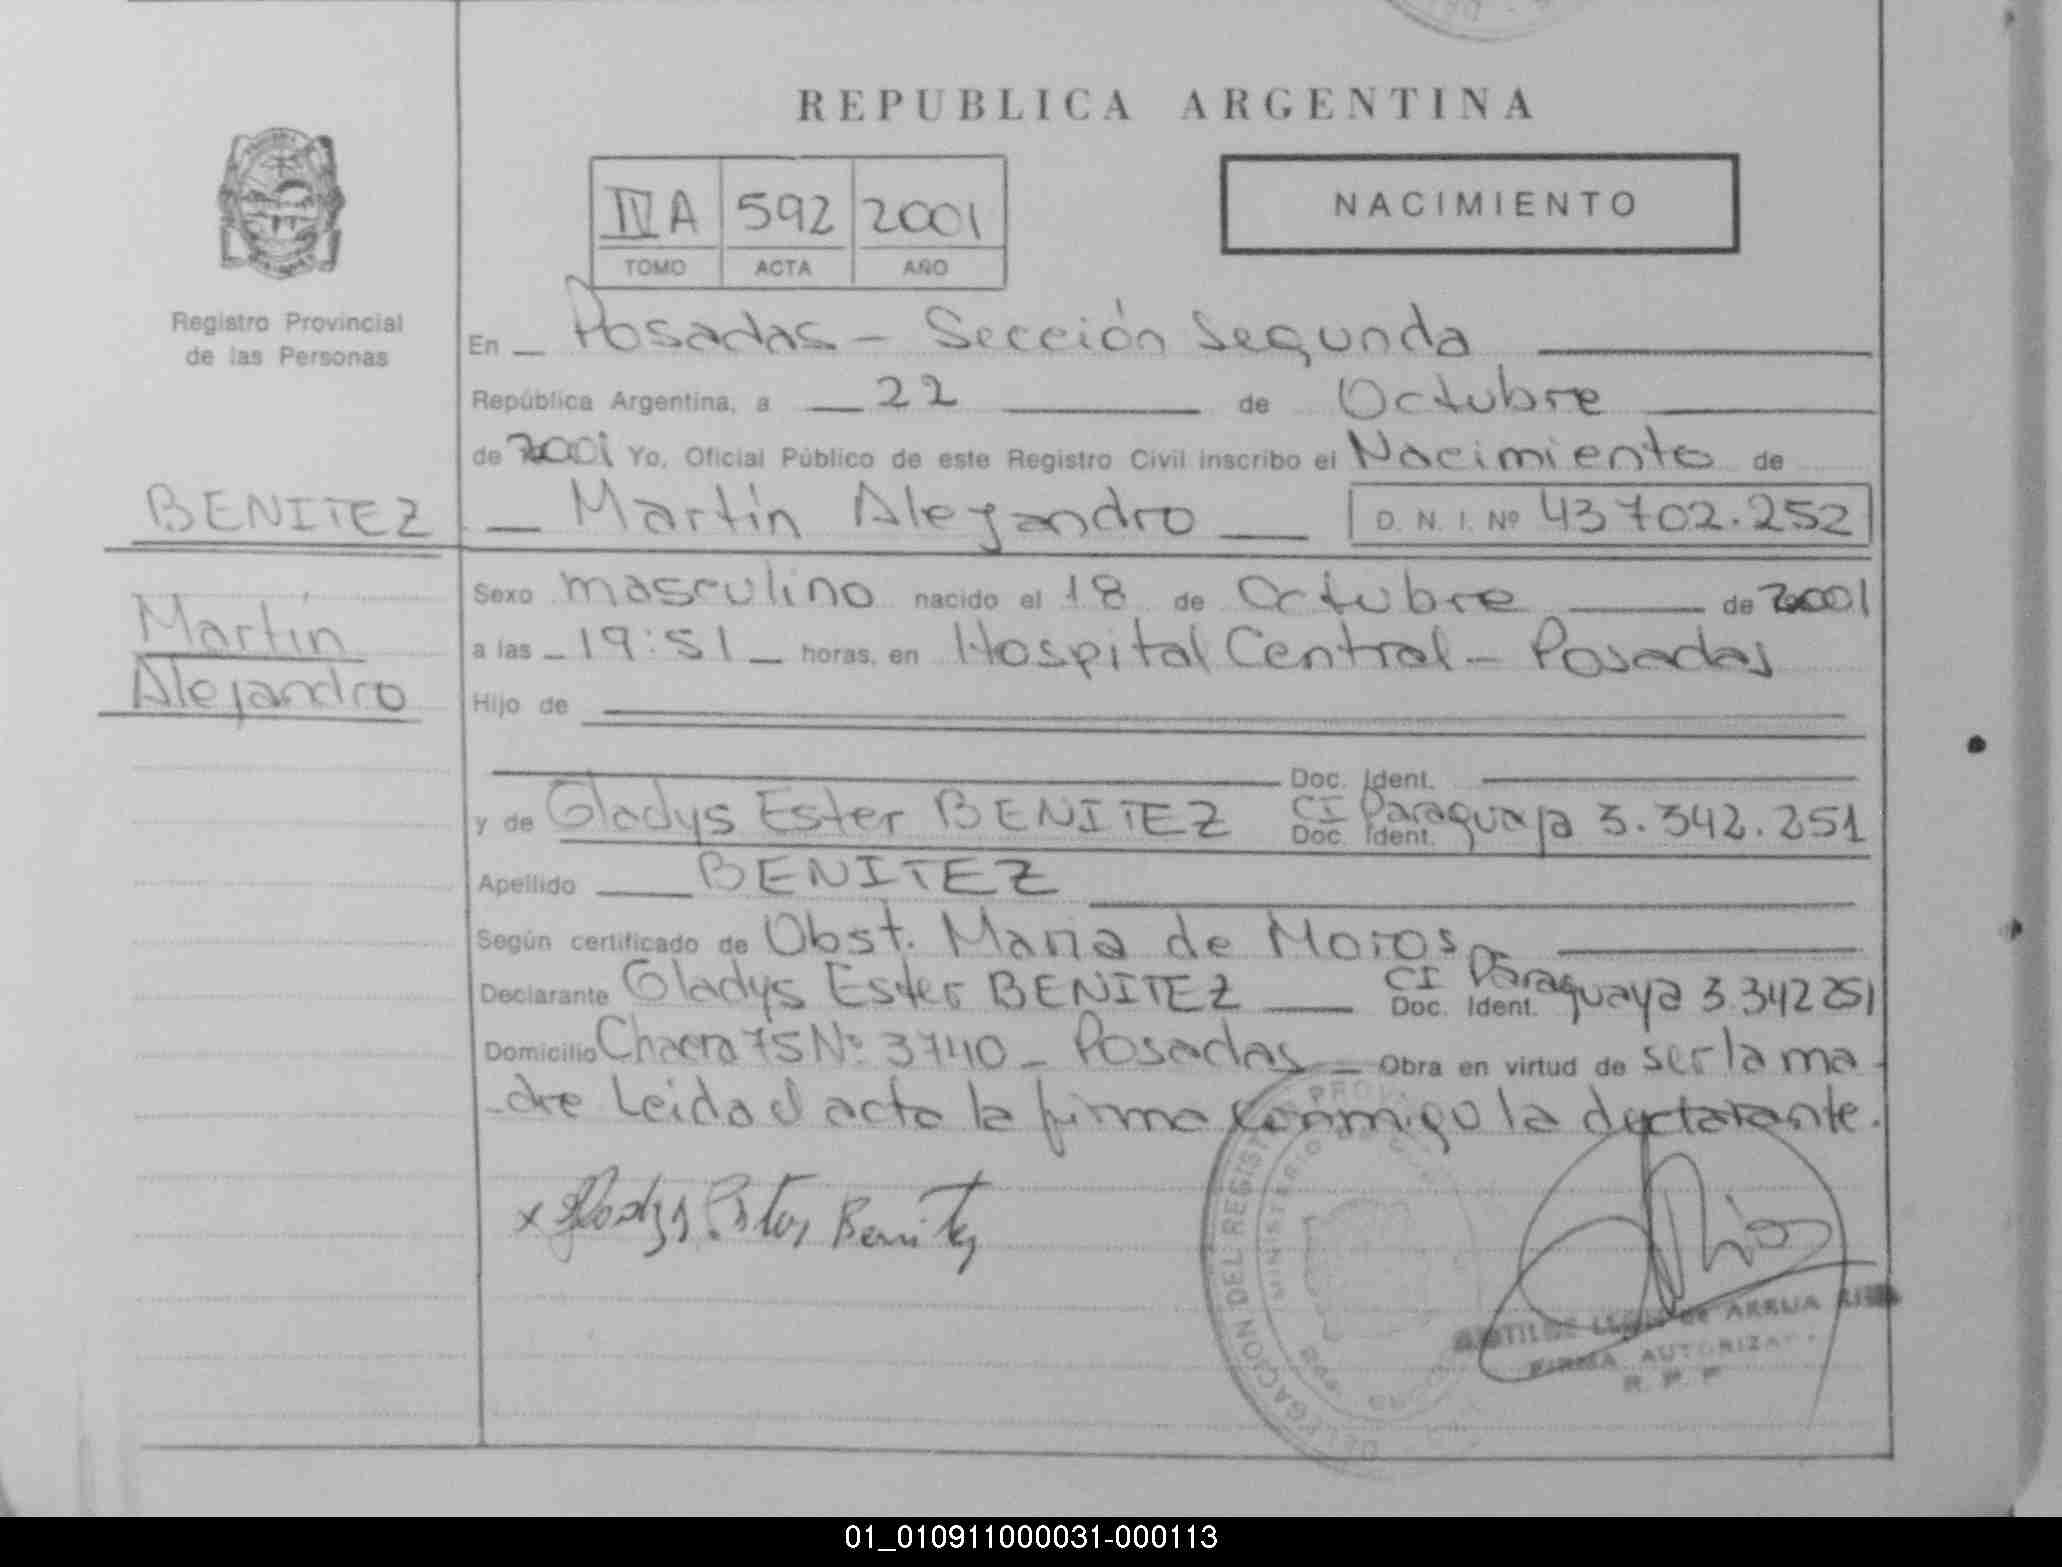 REPUBLICA ARGENTINA
NACIMIENTO
IVA 592 2001
TOMO ACTA AÑO
Registro Provincial
de las Personas
En Posadas - Sección Segunda
República Argentina, a 22 de Octubre
de 2001 Yo, Oficial Público de este Registro Civil inscribo el Nacimiento de
BENITEZ
Martín Alejandro D. N. I. Nº 43702.252
Martín
Alejandro
Sexo masculino nacido el 18 de Octubre de 2001
a las 19:51 horas, en Hospital Central - Posadas
Hijo de
Doc. Ident.
y de Gladys Ester BENITEZ Doc. Ident. CI Paraguaya 3.342.251
Apellido BENITEZ
Según certificado de Obst. Maria de Moros
Declarante Gladys Ester BENITEZ Doc. Ident. CI Paraguaya 3.342251
Domicilio Chacra 75 Nº 3740 - Posadas - Obra en virtud de ser la ma
dre Leida el acta la firma conmigo la declarante.
x Gladys Ester Benitez
DELEGACION DEL REGISTRO PROV.
MINISTERIO DE
DE ARRUA
FIRMA AUTORIZA
R. P. P
01_010911000031-000113